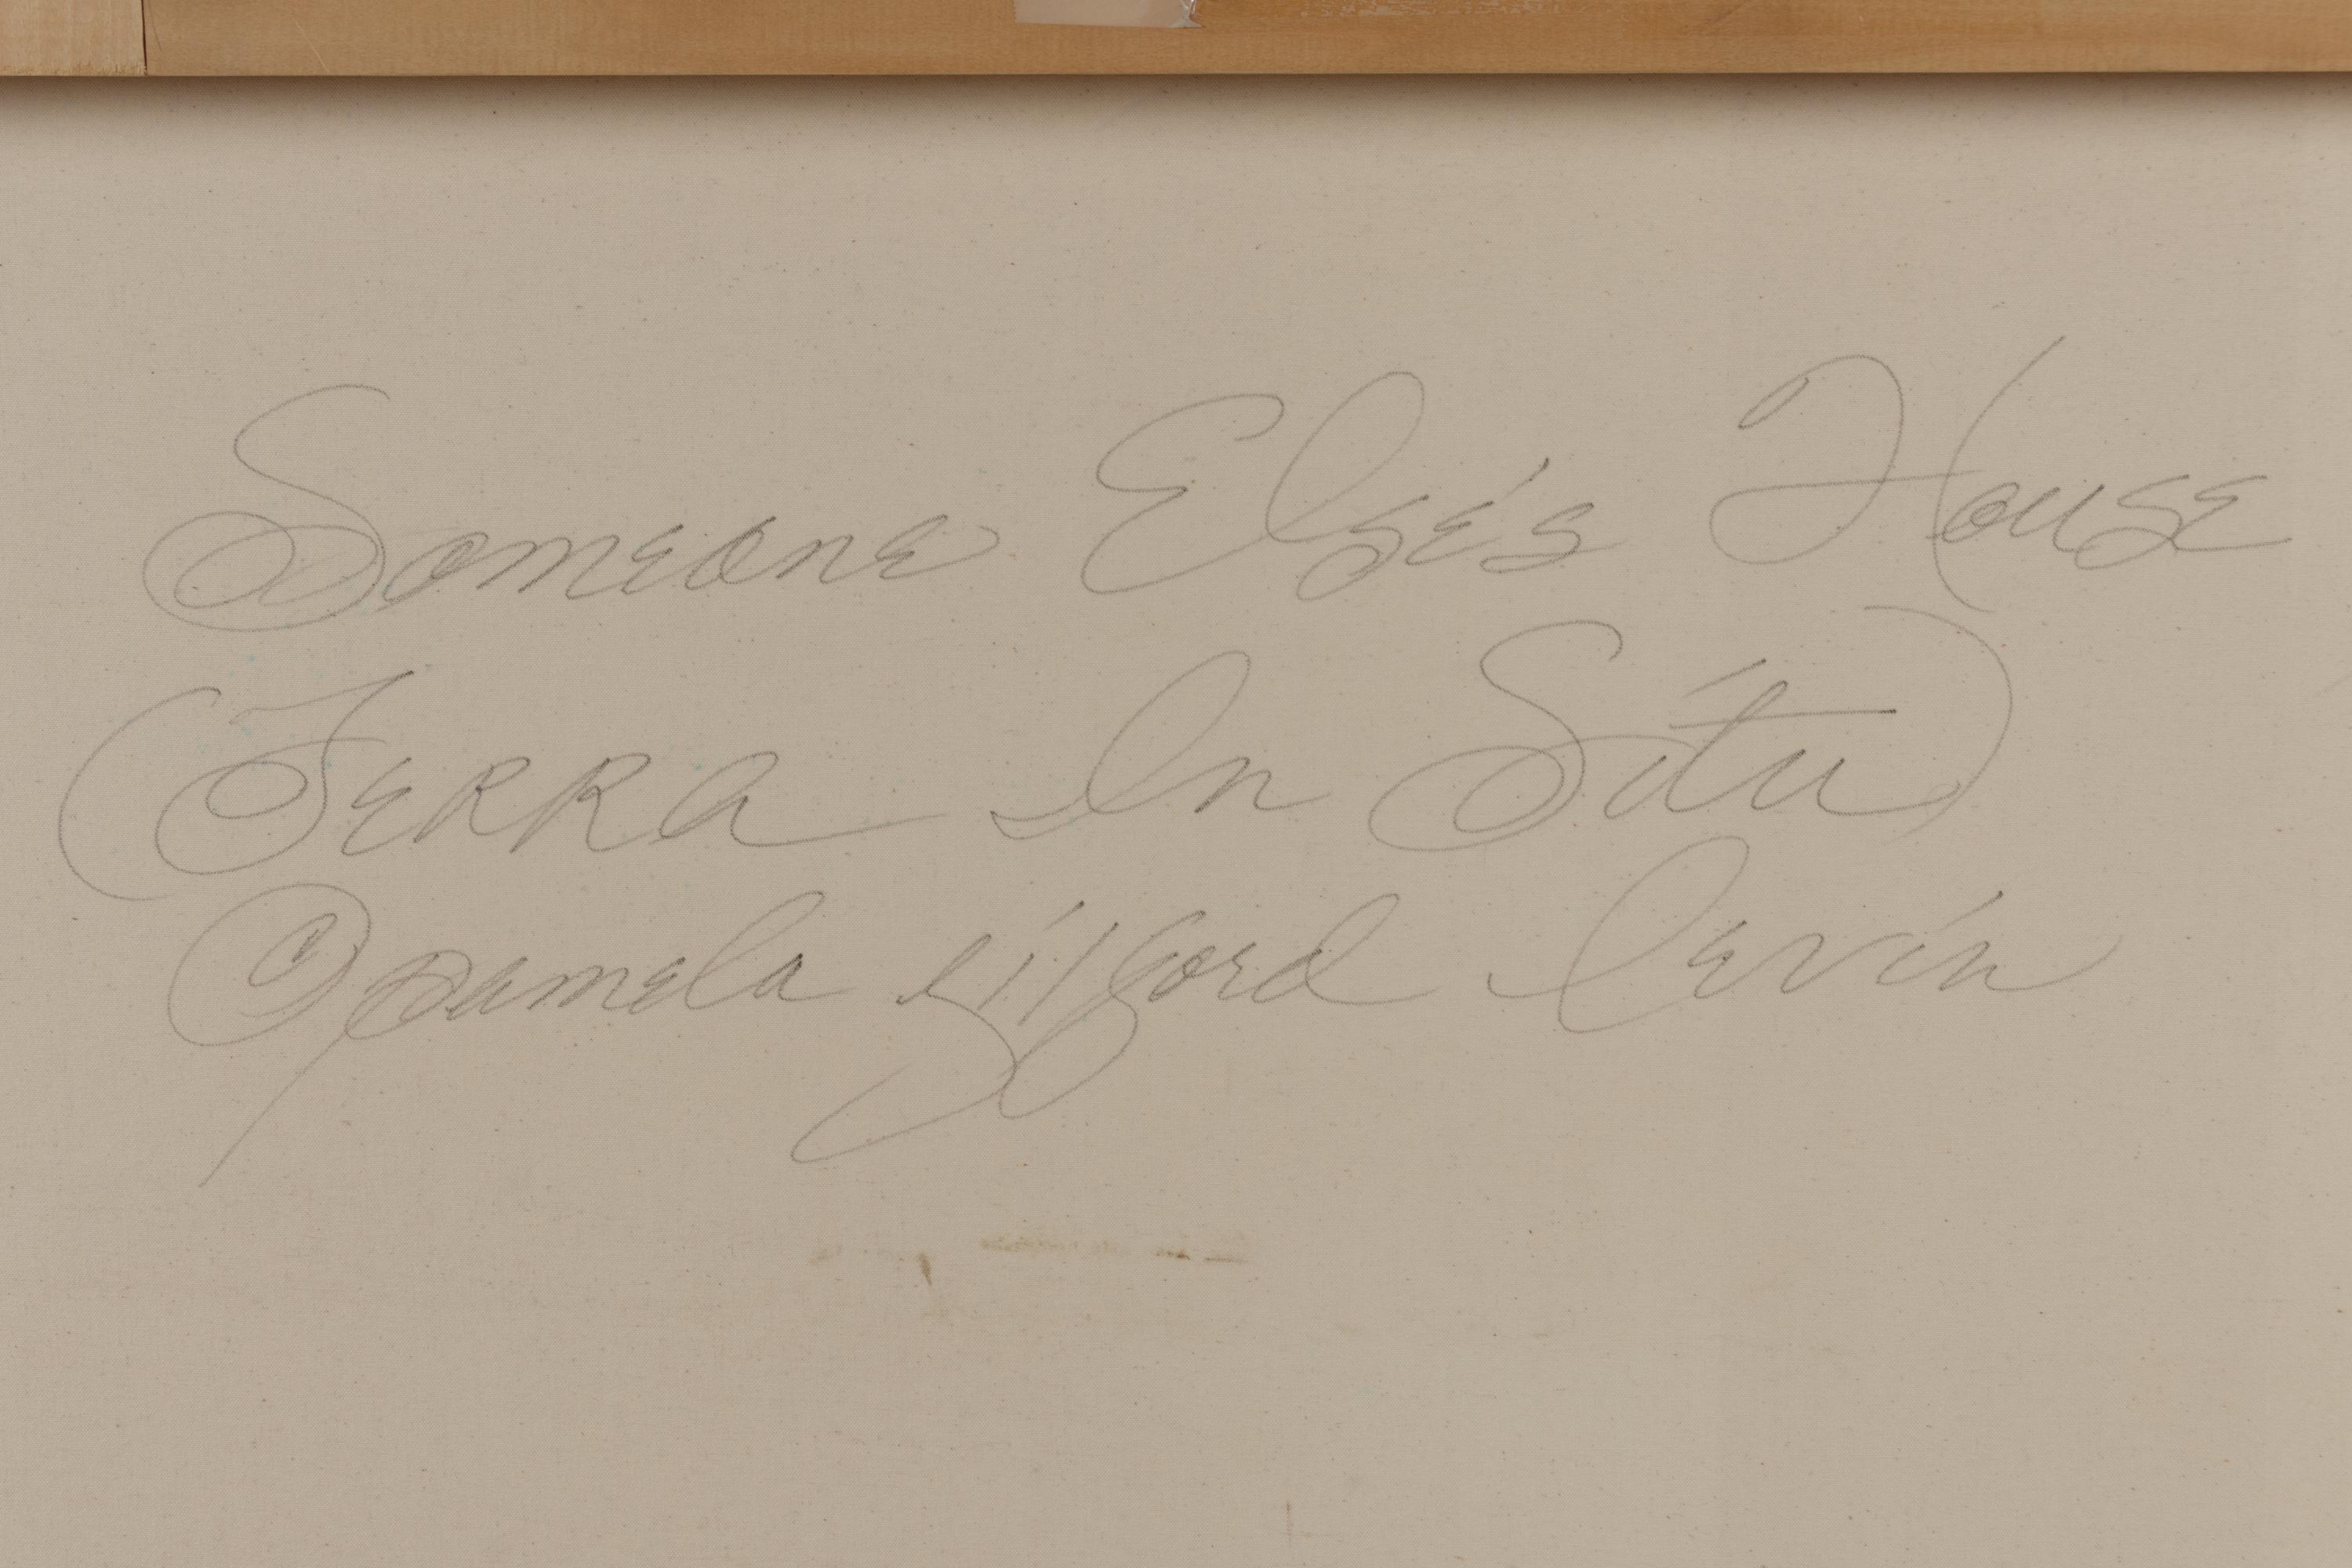 Someone Else's House
(Terra In Situ)
© Pamela Gilford Levin